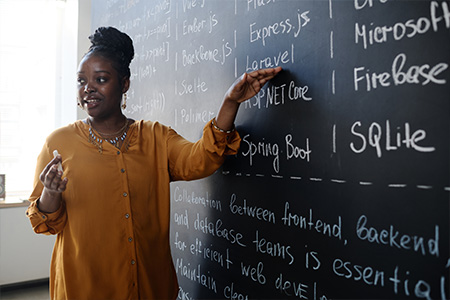 Vue.js | Flask |
Ember.js | Express.js | Microsoft
Backbone.js | Laravel | Firebase
Svelte | ASP.NET Core
Polymer | Spring Boot | SQLite
Collaboration between frontend, backend,
and database teams is essential
for efficient web
Maintain clean